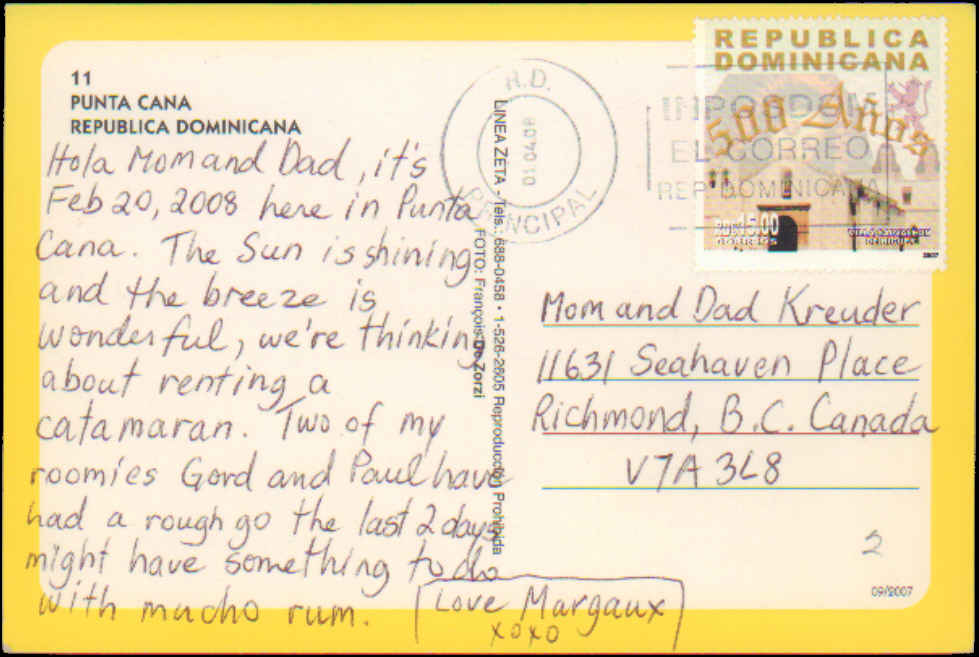 11
PUNTA CANA
REPUBLICA DOMINICANA
Hola Mom and Dad, it's
Feb 20, 2008 here in Punta
Cana. The Sun is shining
and the breeze is
wonderful, we're thinking
about renting a
catamaran. Two of my
roomies Gord and Paul have
had a rough go the last 2 days
might have something to do
with mucho rum.
Love Margaux
xoxo
LINEA ZETA - Tels.: 688-0458 • 1-526-2605 Reproducción Prohibida
FOTO: François De Zorzi
R.D.
PRINCIPAL
INPOSDOM
EL CORREO
REP. DOMINICANA
REPUBLICA
DOMINICANA
500 Años
RD$15.00
CORREOS
2007
Mom and Dad Kreuder
11631 Seahaven Place
Richmond, B.C. Canada
V7A 3L8
2
09/2007